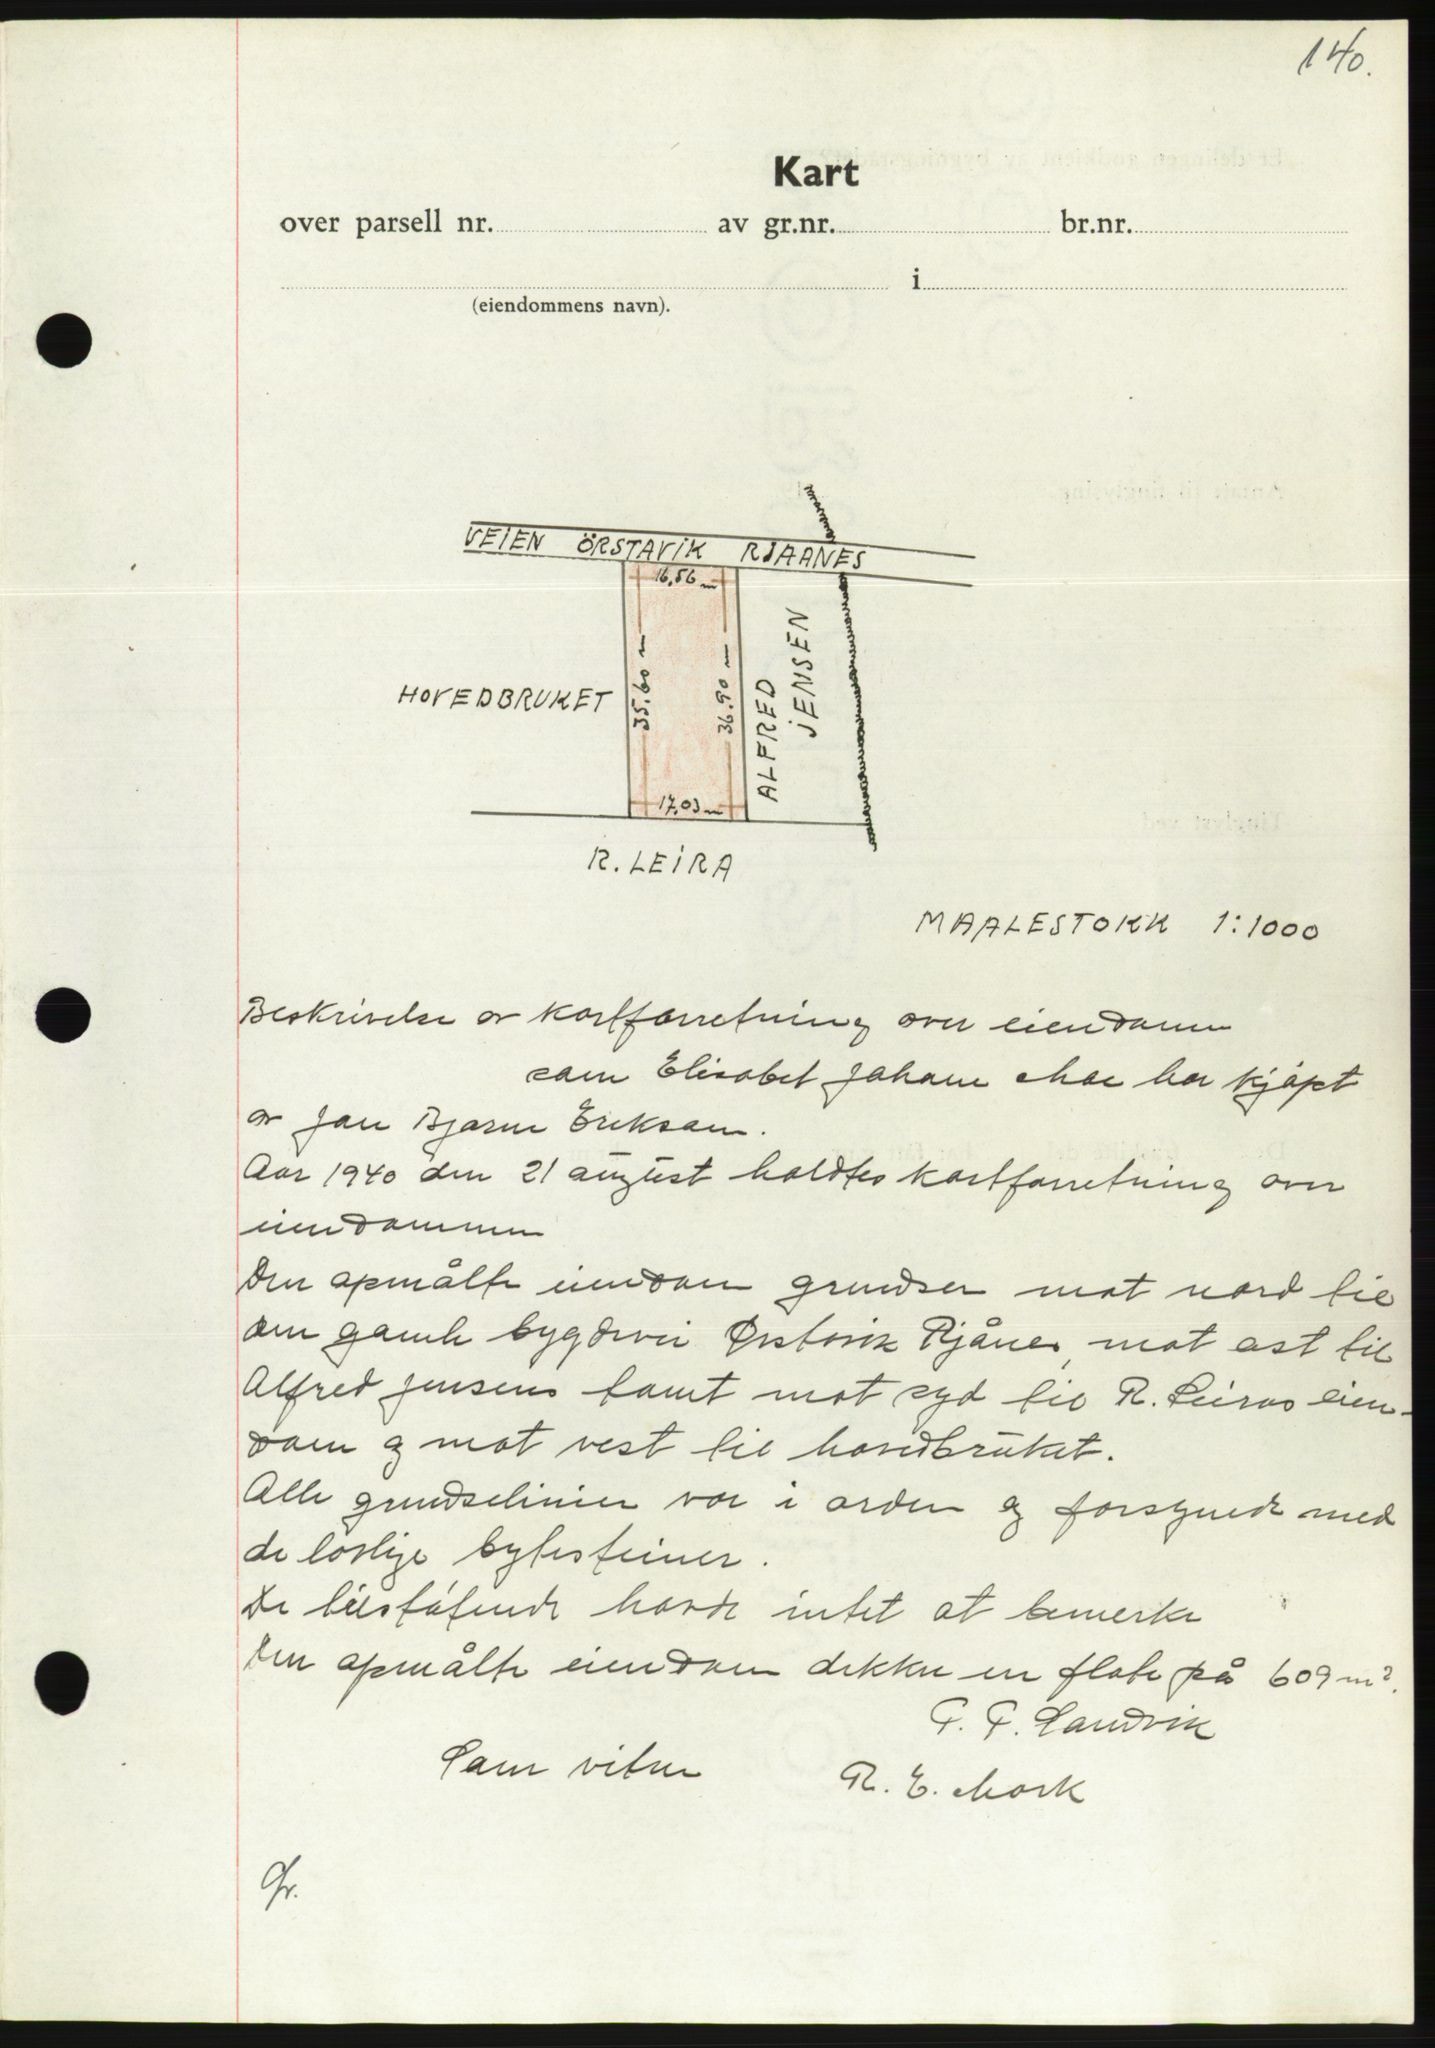 140.
Kart
over parsell nr. av gr.nr. br.nr.
i
(eiendommens navn).
VEIEN ÖRSTAVIK RJAANES
16,56 m
35,60 m
36.90 m
ALFRED
JENSEN
HOVEDBRUKET
17,03 m
R. LEIRA
MAALESTOKK 1:1000
Beskrivelse av kartforretning over eiendom
som Elisabet Johane Moe har kjøpt
av Jon Bjarne Erikson.
Aar 1940 den 21 august holdtes kartforretning over
eiendommen
Den opmålte eiendom grendser mot nord til
den gamle bygdevei Ørstavik Rjånes, mot øst til
Alfred Jensens tomt mot syd til R. Leiras eien-
dom og mot vest til hovedbruket.
Alle grendselinier var i orden og forsynede med
de lovlige bytesteiner.
De tilstøtende havde intet at bemerke
Den opmålte eiendom dekker en flate på 609 m².
Sandvik
Som vitne R. E. Mork